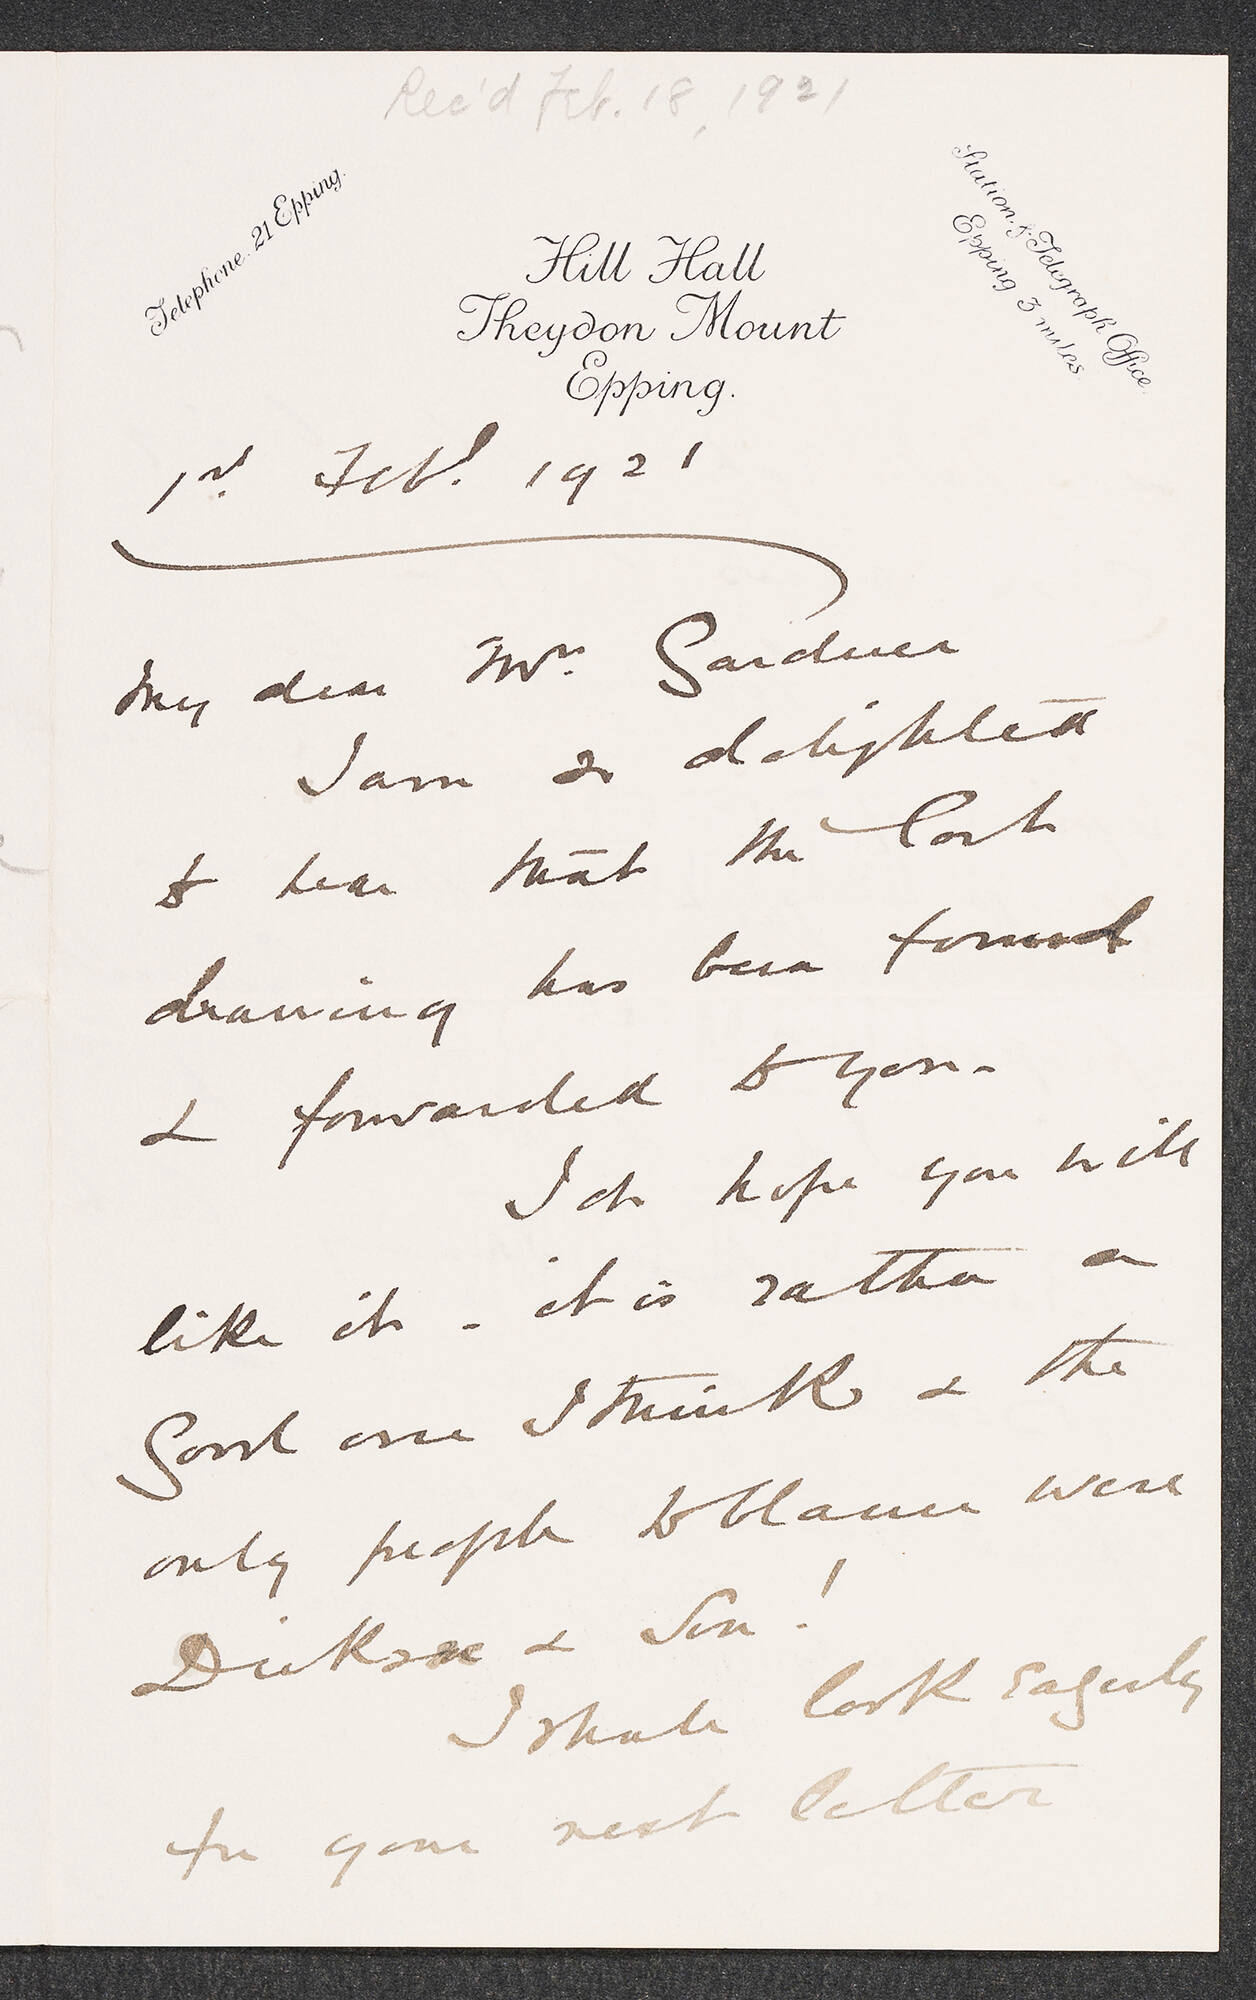 Rec'd Feb. 18, 1921
Telephone. 21 Epping.
Station & Telegraph Office
Epping 3 miles
Hill Hall
Theydon Mount
Epping.
1st. Feby. 1921
My dear Mrs. Gardner
I am so delighted
to hear that the lost
drawing has been found
& forwarded to you-
I do hope you will
like it - it is rather a
Good one I think & the
only people to blame were
& Son!
I shall look Eagerly
for your next letter